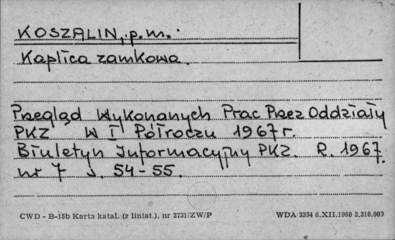 KOSZALIN, p.m.
Kaplica zamkowa.
Przegląd Wykonanych Prac Przez Oddziały
PKZ W I Półroczu 1967 r.
Biuletyn Informacyjny PKZ. R. 1967.
nr 7 s. 54-55.
CWD - B-18b Karta katal. (z liniat.), nr 2731/ZW/P WDA 3354 6.XII.1960 2.310.000